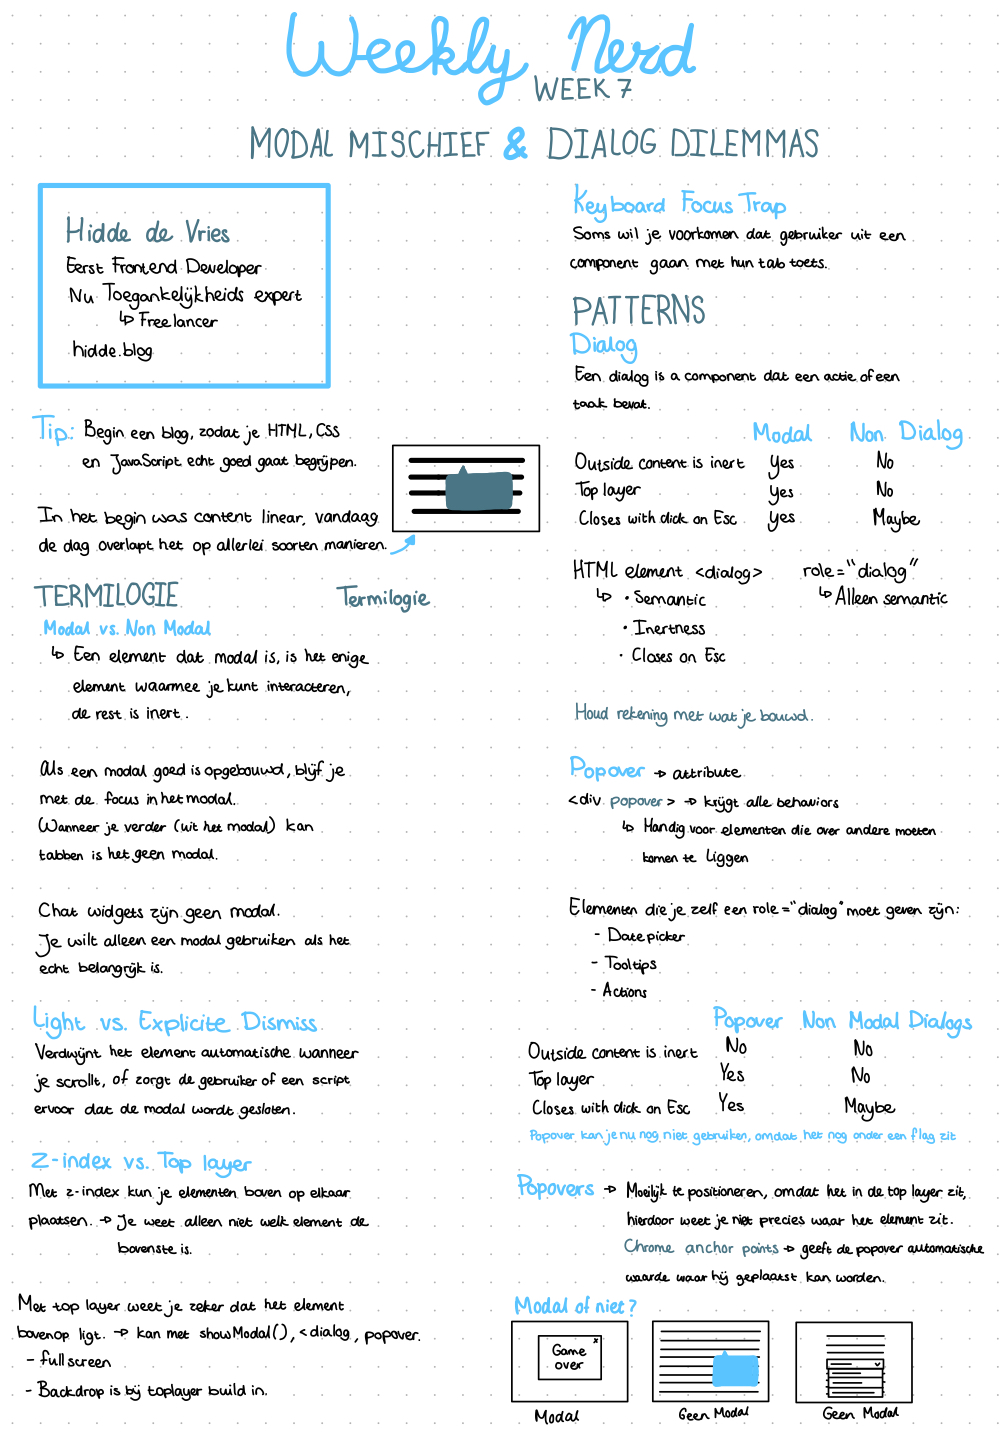 Weekly Nerd
WEEK 7
MODAL MISCHIEF & DIALOG DILEMMAS
Hidde de Vries
Eerst Frontend Developer
Nu Toegankelijkheids expert
↳ Freelancer
hidde.blog
Tip: Begin een blog, zodat je HTML, CSS
en JavaScript echt goed gaat begrijpen.
In het begin was content linear, vandaag
de dag overlapt het op allerlei soorten manieren.
TERMILOGIE
Termilogie
Modal vs. Non Modal
↳ Een element dat modal is, is het enige
element waarmee je kunt interacteren,
de rest is inert.
Als een modal goed is opgebouwd, blijf je
met de focus in het modal.
Wanneer je verder (uit het modal) kan
tabben is het geen modal.
Chat widgets zijn geen modal.
Je wilt alleen een modal gebruiken als het
echt belangrijk is.
Light vs. Explicite Dismiss
Verdwijnt het element automatische wanneer
je scrollt, of zorgt de gebruiker of een script
ervoor dat de modal wordt gesloten.
Z-index vs. Top layer
Met z-index kun je elementen boven op elkaar
plaatsen. → Je weet alleen niet welk element de
bovenste is.
Met top layer weet je zeker dat het element
bovenop ligt. → kan met showModal(), <dialog, popover.
- full screen
- Backdrop is bij toplayer build in.
Keyboard Focus Trap
Soms wil je voorkomen dat gebruiker uit een
component gaan met hun tab toets.
PATTERNS
Dialog
Een dialog is a component dat een actie of een
taak bevat.
Modal Non Dialog
Outside content is inert Yes No
Top layer Yes No
Closes with click on Esc Yes Maybe
HTML element <dialog> role="dialog"
↳ • Semantic ↳ Alleen semantic
• Inertness
• Closes on Esc
Houd rekening met wat je bouwd.
Popover → attribute
<div popover> → krijgt alle behaviors
↳ Handig voor elementen die over andere moeten
komen te liggen
Elementen die je zelf een role="dialog" moet geven zijn:
- Datepicker
- Tooltips
- Actions
Popover Non Modal Dialogs
Outside content is inert No No
Top layer Yes No
Closes with click on Esc Yes Maybe
Popover kan je nu nog niet gebruiken, omdat het nog onder een flag zit
Popovers → Moeilijk te positioneren, omdat het in de top layer zit,
hierdoor weet je niet precies waar het element zit.
Chrome anchor points → geeft de popover automatische
waarde waar hij geplaatst kan worden.
Modal of niet?
x
Game
over
Modal Geen Modal Geen Modal